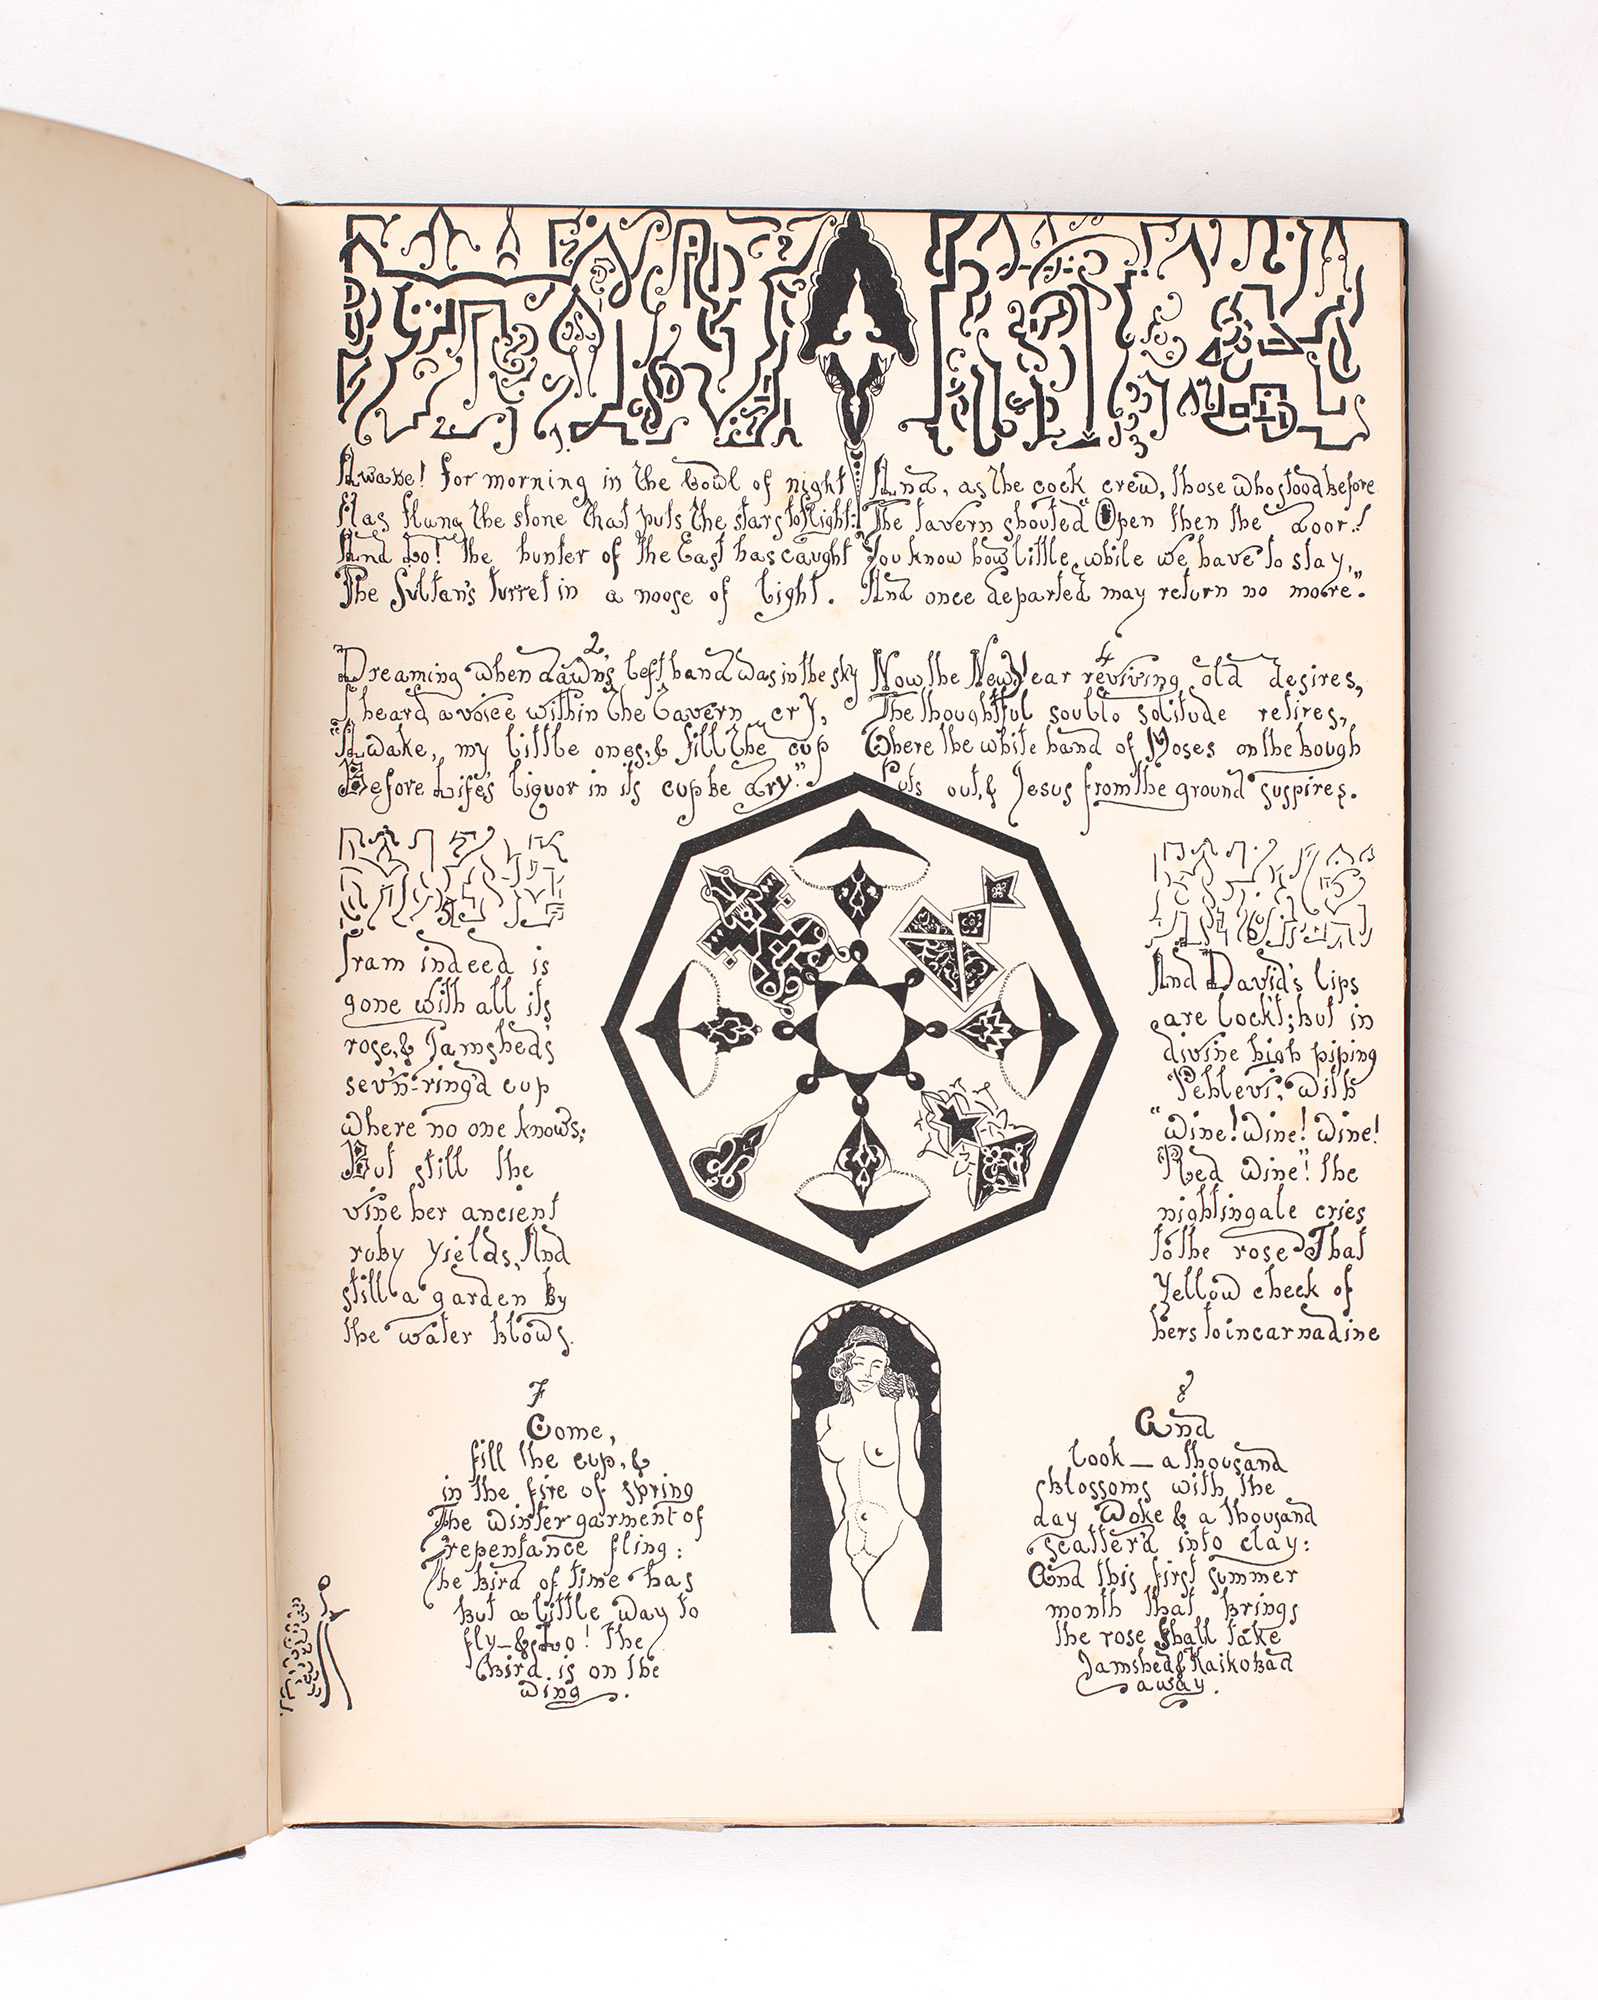 1.
Awake! for morning in the bowl of night
Has flung the stone that puts the stars to flight:
And Lo! the hunter of the East has caught
The Sultan's turret in a noose of light.
2.
Dreaming when dawn's left hand was in the sky
I heard a voice within the tavern cry,
"Awake, my little ones, & fill the cup
Before Life's liquor in its cup be dry."
3
And, as the cock crew, those who stood before
The tavern shouted "Open then the door!
You know how little while we have to stay,
And once departed may return no more."
4
Now the New Year reviving old desires,
The thoughtful soul to solitude retires,
Where the white hand of Moses on the bough
Puts out, & Jesus from the ground suspires.
5
Iram indeed is
gone with all its
rose, & Jamshed's
sev'n-ring'd cup
where no one knows;
But still the
vine her ancient
ruby yields, And
still a garden by
the water blows.
6
And David's lips
are lock't; but in
divine high piping
Pehlevi, with
"wine! wine! wine!
Red wine"! the
nightingale cries
to the rose That
Yellow cheek of
hers to incarnadine
7
Come,
fill the cup, &
in the fire of spring
The winter garment of
repentance fling:
The bird of time has
but a little way to
fly—& Lo! The
bird is on the
wing.
8
And
look — a thousand
blossoms with the
day Woke & a thousand
scatter'd into clay:
And this first summer
month that brings
the rose Shall take
Jamshed & Kaikobad
away.